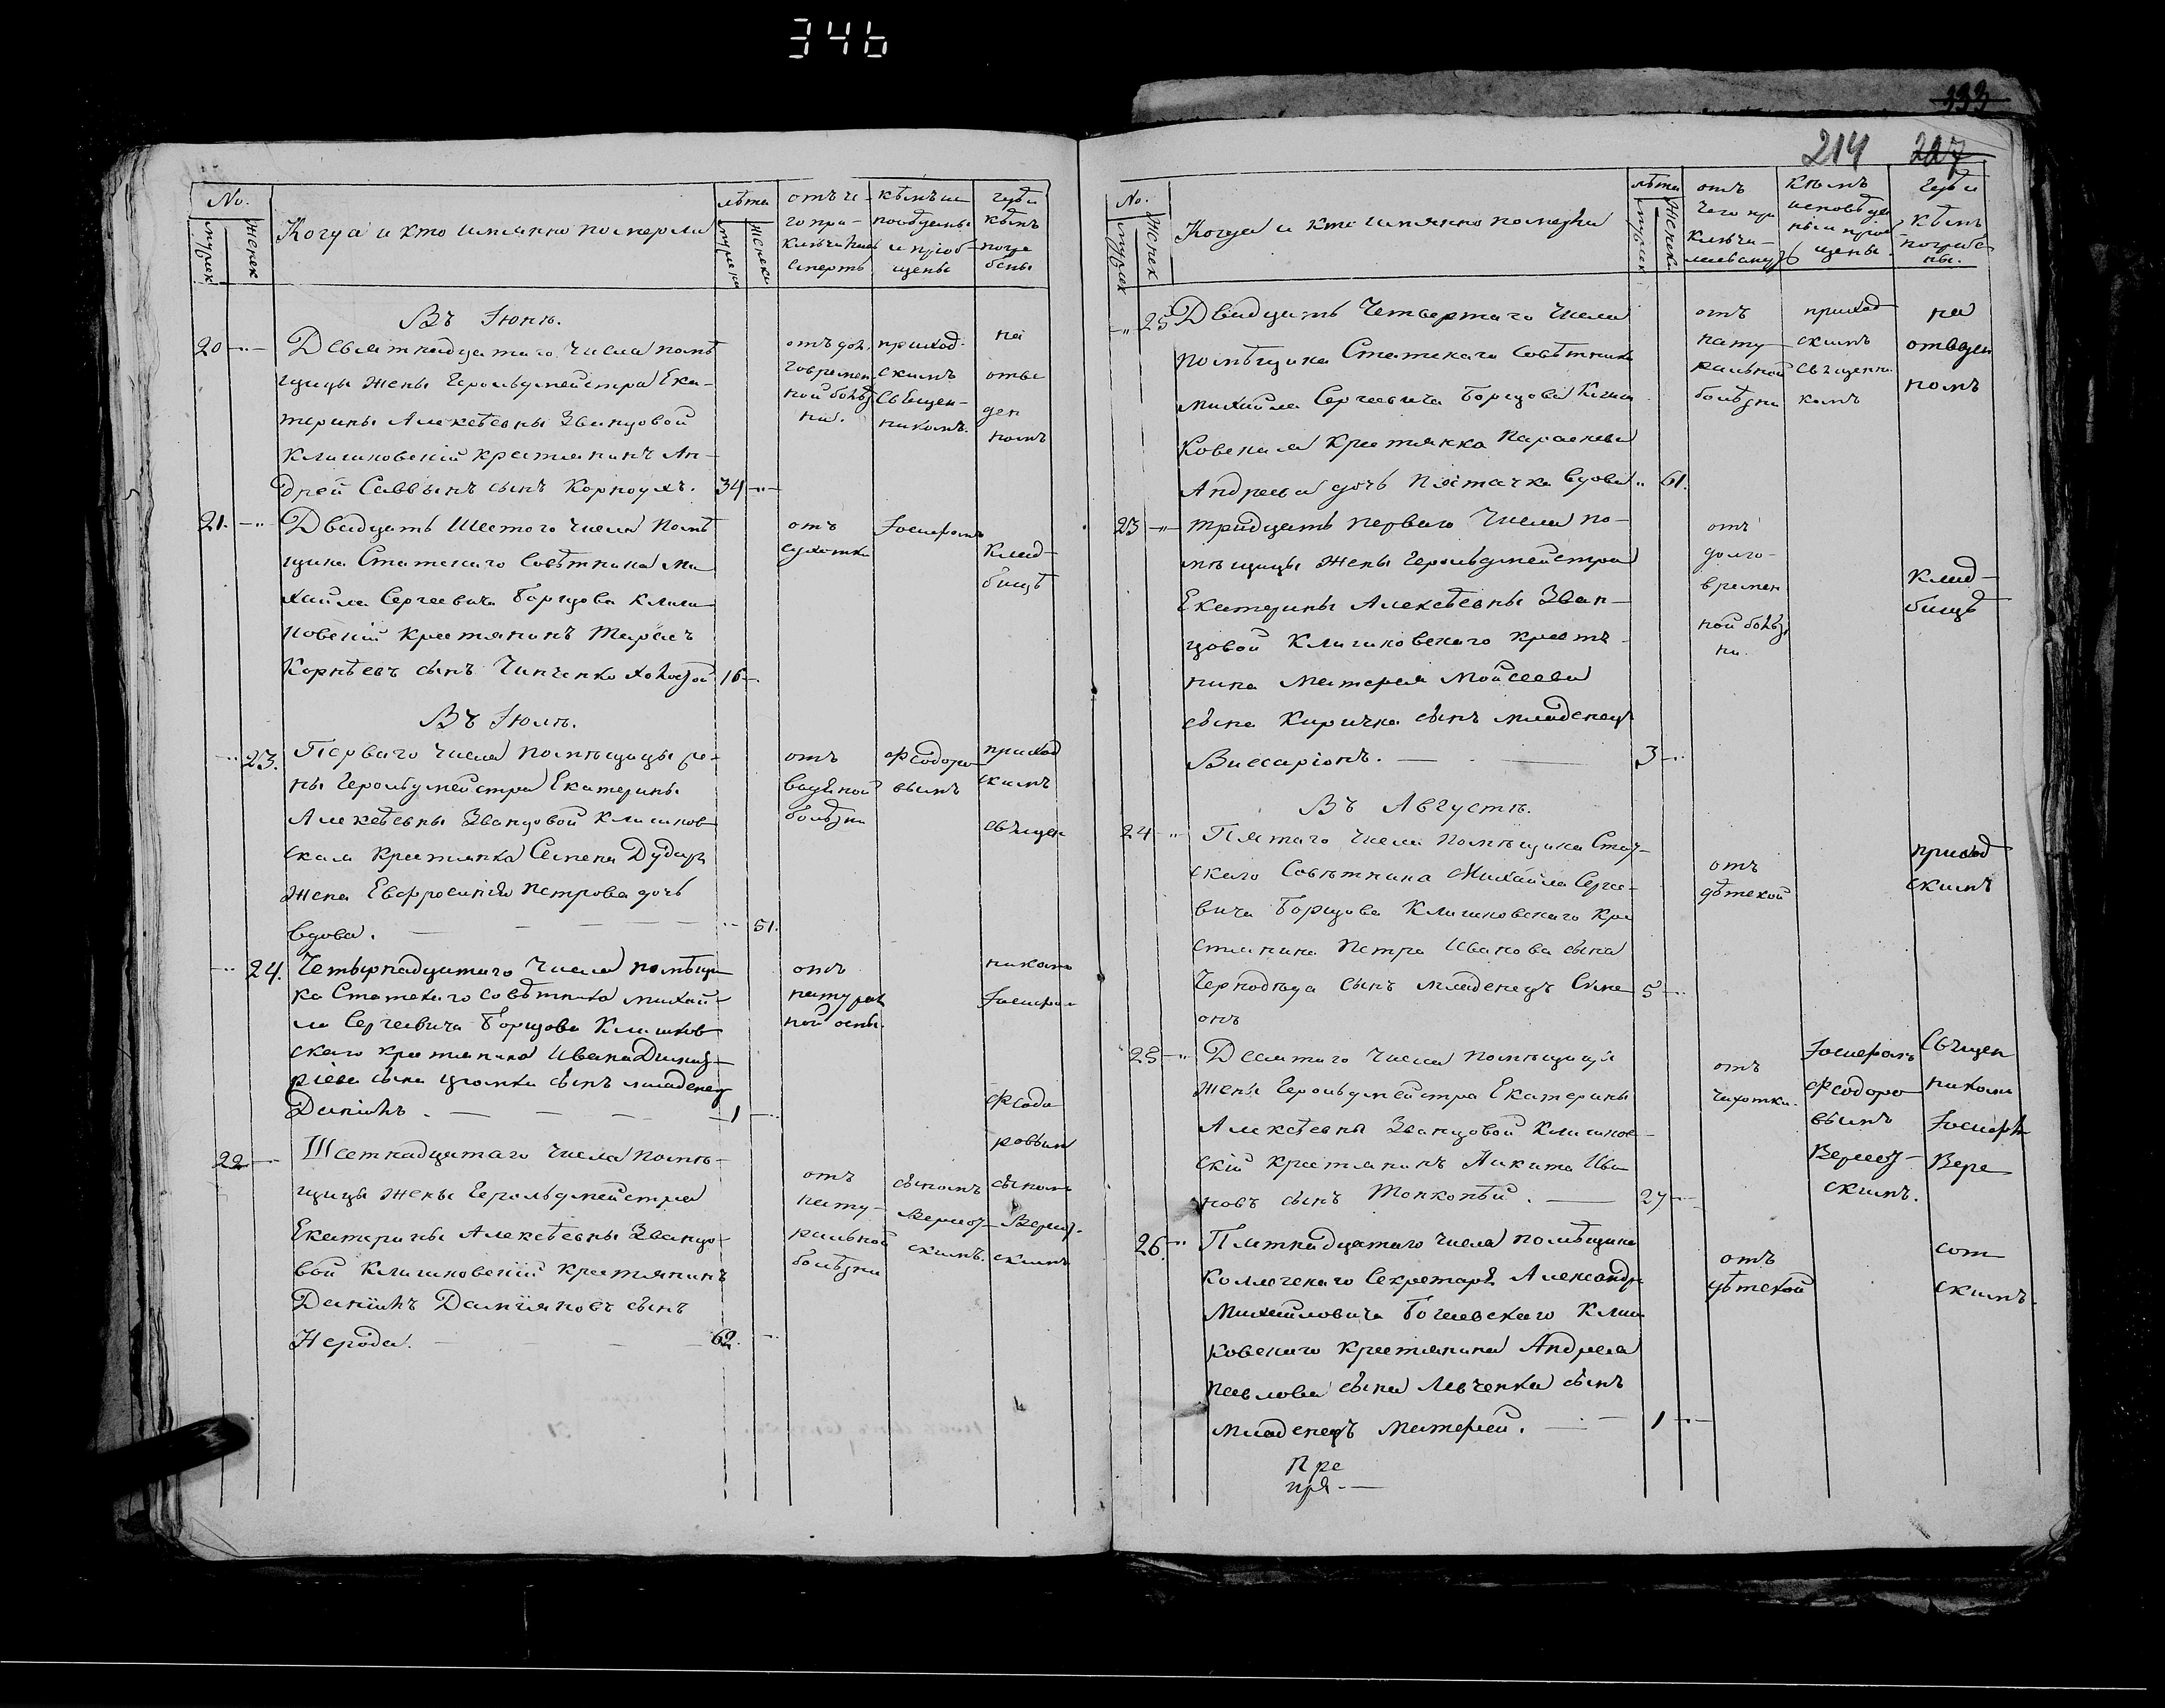 346
No.
мужск
женск
Когда и кто имянно померли
лѣта
мужеска
женска
отъ че-
го при-
ключилась
смерть
кѣмъ ис
повѣданы
и приоб-
щены
гдѣ и
кѣмъ
погре
бены
Въ Іюнѣ.
20
Девятнадцатаго числа помѣ
щицы жены Герольдмейстра Ека-
терины Алексѣевны Званцовой
Клишковскій крестьянинъ Ан-
дрей Саввинъ сынъ Корноухъ. 34
отъ дол
говремен
ной болѣз
ни.
приход-
скимъ
Священ-
никомъ
на
отве
ден
номъ
21.
Двадцать Шестого числа Помѣ
щика Статскаго Совѣтника Ми
хайла Сергеевича Борщова Клиш
ковскій крестьянинъ Тарасъ
Корнѣевъ сынъ Чипченко холостой 16
отъ
сухотки
Іосифомъ
клад-
бищѣ
Въ Іюлѣ.
23.
Перваго числа помѣщицы же-
ны Герольдмейстра Екатерины
Алексѣевны Званцовой Клишков
ская крестьянка Семена Дударя
жена Евфросинія Петрова дочь
вдова. 51.
отъ
водяной
болѣзни
Ѳеодоро
вымъ
приход
скимъ
священ
24.
Четырнадцатаго числа помѣщи
ка Статскаго совѣтника Михай-
ла Сергеевича Борщова Клишков
скаго крестьянина Ивана Дмит
ріева сына сынъ младенец
Даніилъ. 1
отъ
натураль
ной оспы.
никомъ
Іосифом
Ѳеодо
ровым
22
Шестнадцатаго числа помѣ-
щицы жены Герольдмейстра
Екатерины Алексѣевны Званцо-
вой Клишковскій крестьянинъ
Даніилъ Даміяновъ сынъ
Нерода. 62.
отъ
нату-
ральной
болѣзни
сыномъ
Верест-
скимъ.
сыномъ
Верест-
скимъ
333
214 227
No.
мужск
женск
Когда и кто имянно померли
лѣта
мужеск
женска
отъ
чего при
ключи-
лась смерть
кѣмъ
исповѣда
ны и приоб
щены.
гдѣ и
кѣмъ
погребе
ны.
25
Двадцать Четвертаго числа
помѣщика Статскаго Совѣтника
Михайла Сергеевича Борщова Клиш
ковская крестьянка Параскева
Андреева дочь Пятачка вдова 61.
отъ
нату
ральной
болѣзни
приход
скимъ
Священни
комъ
на
отведен
номъ
23
тридцать перваго числа по-
мѣщицы жены Герольдмейстра
Екатерины Алексѣевны Зван-
цовой Клишковскаго крестья-
нина Матѳея Мойсеева
сына Киричка сынъ младенецъ
Виссаріонъ. 3
отъ
долго-
времен
ной болѣз
ни.
клад-
бищѣ
Въ Августѣ.
24
Пятаго числа помѣщика Стат-
скаго Совѣтника Михайла Серге-
вича Борщова Клишковскаго кре
стьянина Петра Иванова сына
Чернодѣда сынъ младенецъ Симе 5
онъ
отъ
дѣтской
приход
скимъ
25
Десятаго числа помѣщицы
жены Герольдмейстра Екатерины
Алексѣевны Званцовой Клишков-
скій крестьянинъ Никита Ива
новъ сынъ Тонконѣй. 27
отъ
чихотки.
Іосифомъ
Ѳеодоро
вымъ
Верест-
скимъ.
Священ
никомъ
Іосифом
Вере
26.
Пятнадцатаго числа помѣщика
Коллежскаго Секретаря Александра
Михайловича Богаевскаго Клиш
ковскаго крестьянина Андрея
Павлова сына Левченка сынъ
младенецъ Матѳей. 1
отъ
дѣтской
скимъ.